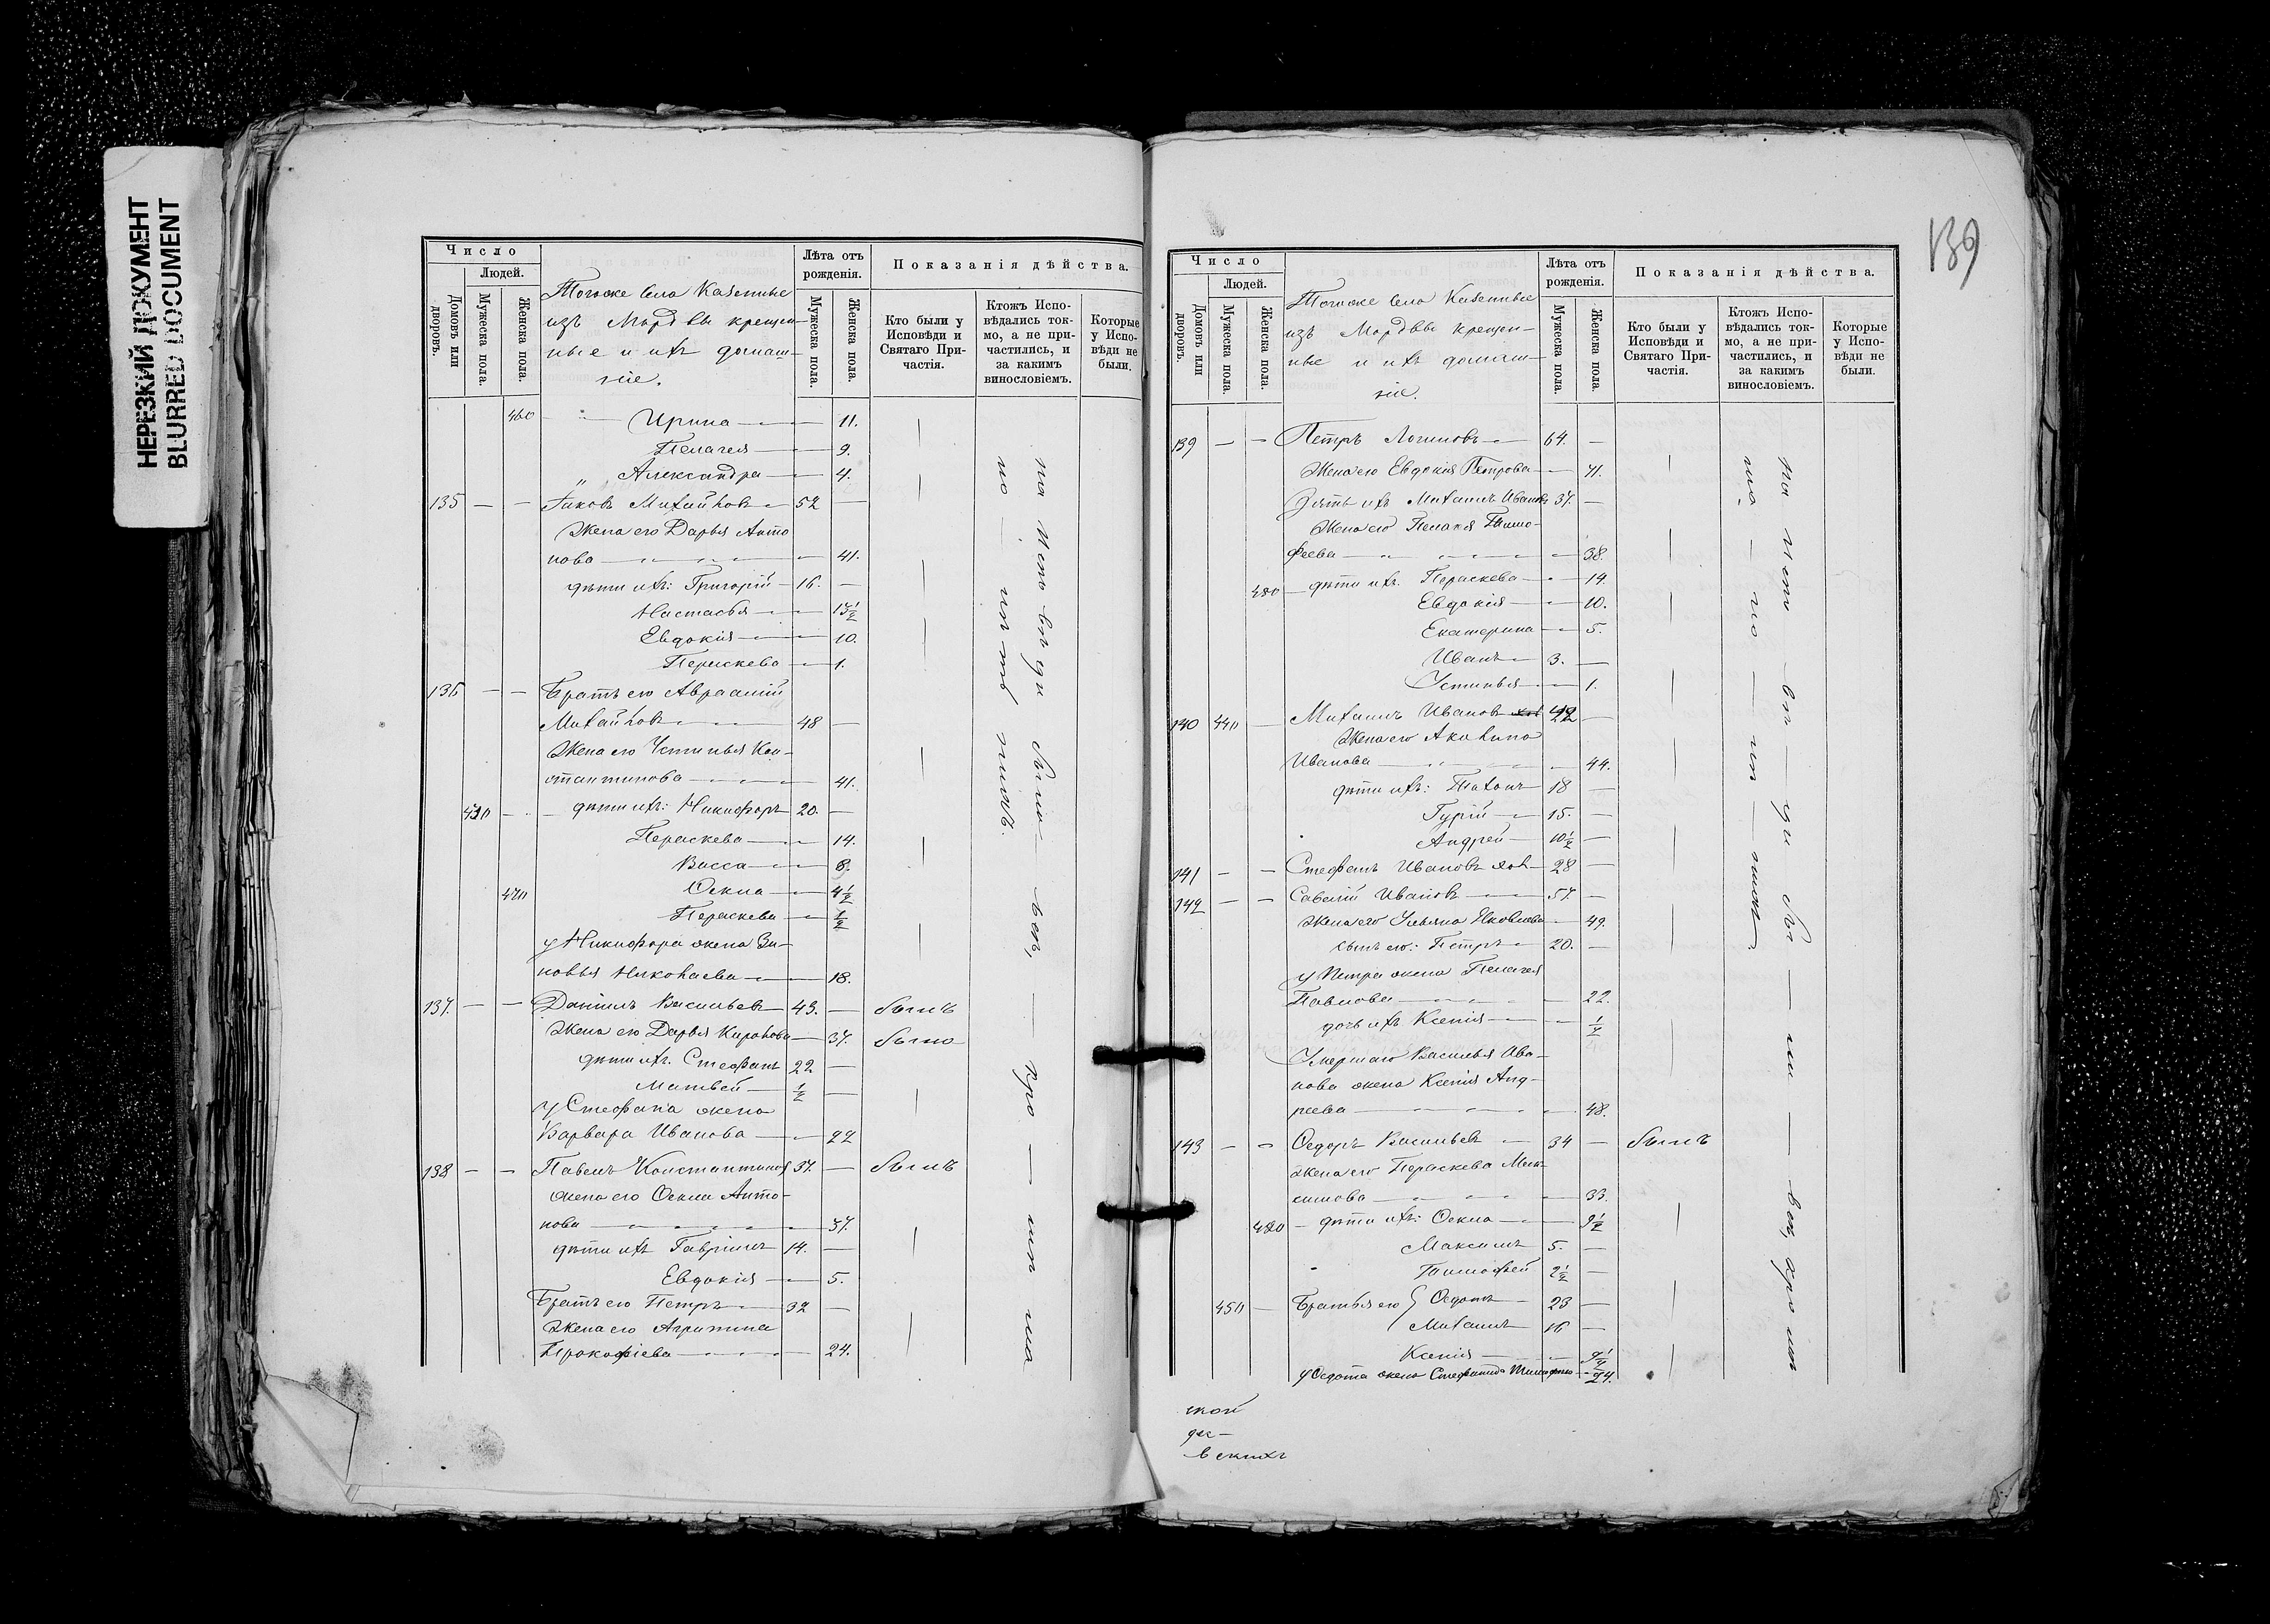 НЕРЕЗКИЙ ДОКУМЕНТ
BLURRED DOCUMENT
Число
Людей.
Домовъ или дворовъ.
Мужеска пола.
Женска пола.
Тогоже села Казенные
изъ Мордвы крещен-
ные и ихъ домаш-
ніе.
Лѣта отъ рожденія.
Мужеска пола.
Женска пола.
Показанія дѣйства.
Кто были у Исповѣди и Святаго Причастія.
Ктожъ Исповѣдались токмо, а не причастились, и за какимъ винословіемъ.
Которые у Исповѣди не были.
460 Ирина — 11.
Пелагея — 9.
„ Александра — 4.
135 — — Яковъ Михайловъ — 52 —
Жена его Дарья Анто
нова — 41.
дѣти ихъ: Григорій — 16. —
Настасья — 13½
Евдокія — 10.
Параскева — 1.
136 — — Братъ его Авраамій
Михайловъ — 48 —
Жена его Устинья Кон-
стантинова — 41.
430 — — дѣти ихъ: Никифоръ 20. —
Параскева — 14.
Васса — 8.
470 Ѳекла — 4½
Параскева — ½
у Никифора жена Зи-
новья Николаева — 18.
137. — — Даніилъ Васильевъ — 43. — былъ
Жена его Дарья Карпова — 37. была
дѣти ихъ. Стефанъ 22 —
Матвей — ½ —
У Стефана жена
Варвара Иванова — 22
138 — — Павелъ Константиновъ 37. — былъ
жена его Ѳекла Анто-
нова — 37.
дѣти ихъ Гавріилъ 14. —
Евдокія — 5.
Братъ его Петръ — 32 —
Жена его Агрипина
Прокофіева — 24.
139
Число
Людей.
Домовъ или дворовъ.
Мужеска пола.
Женска пола.
Тогоже села Казенные
изъ Мордвы крещен-
ные и ихъ домаш-
ніе.
Лѣта отъ рожденія.
Мужеска пола.
Женска пола.
Показанія дѣйства.
Кто были у Исповѣди и Святаго Причастія.
Ктожъ Исповѣдались токмо, а не причастились, и за какимъ винословіемъ.
Которые у Исповѣди не были.
139 — — Петръ Логиновъ — 64. —
Жена его Евдокія Петрова — 41.
Зять ихъ Михаилъ Ивановъ 37. —
Жена его Пелагея Тимо-
феева — 38.
480 — дѣти ихъ. Параскева — 14.
Евдокія — 10.
Екатерина — 5.
Иванъ — 3. —
Устинья — 1.
140 440 — Михаилъ Ивановъ
Жена его Акилина
Иванова — 44.
дѣти ихъ: Пахомъ — 18 —
Гурій — 15. —
Андрей — 10½ —
141 — — Стефанъ Ивановъ хол — 28 —
142 — — Савелій Ивановъ — 57. —
жена его Ульяна Яковлева — 49.
сынъ его: Петръ — 20. —
У Петра жена Пелагея
Павлова — 22.
дочь ихъ Ксенія — ¼
Умершаго Василья Ива-
нова жена Ксенія Анд-
реева — 48.
143 — — Ѳедоръ Васильевъ — 34 — былъ
жена его Параскева Мак-
симова — 33.
дѣти ихъ: Ѳекла — 9½
Максимъ 5. —
Тимофей 2½ —
450 — Братья его Ѳедотъ — 23 —
Михаилъ 16 —
Ксенія
у Ѳедота жена Стефанида — 24.